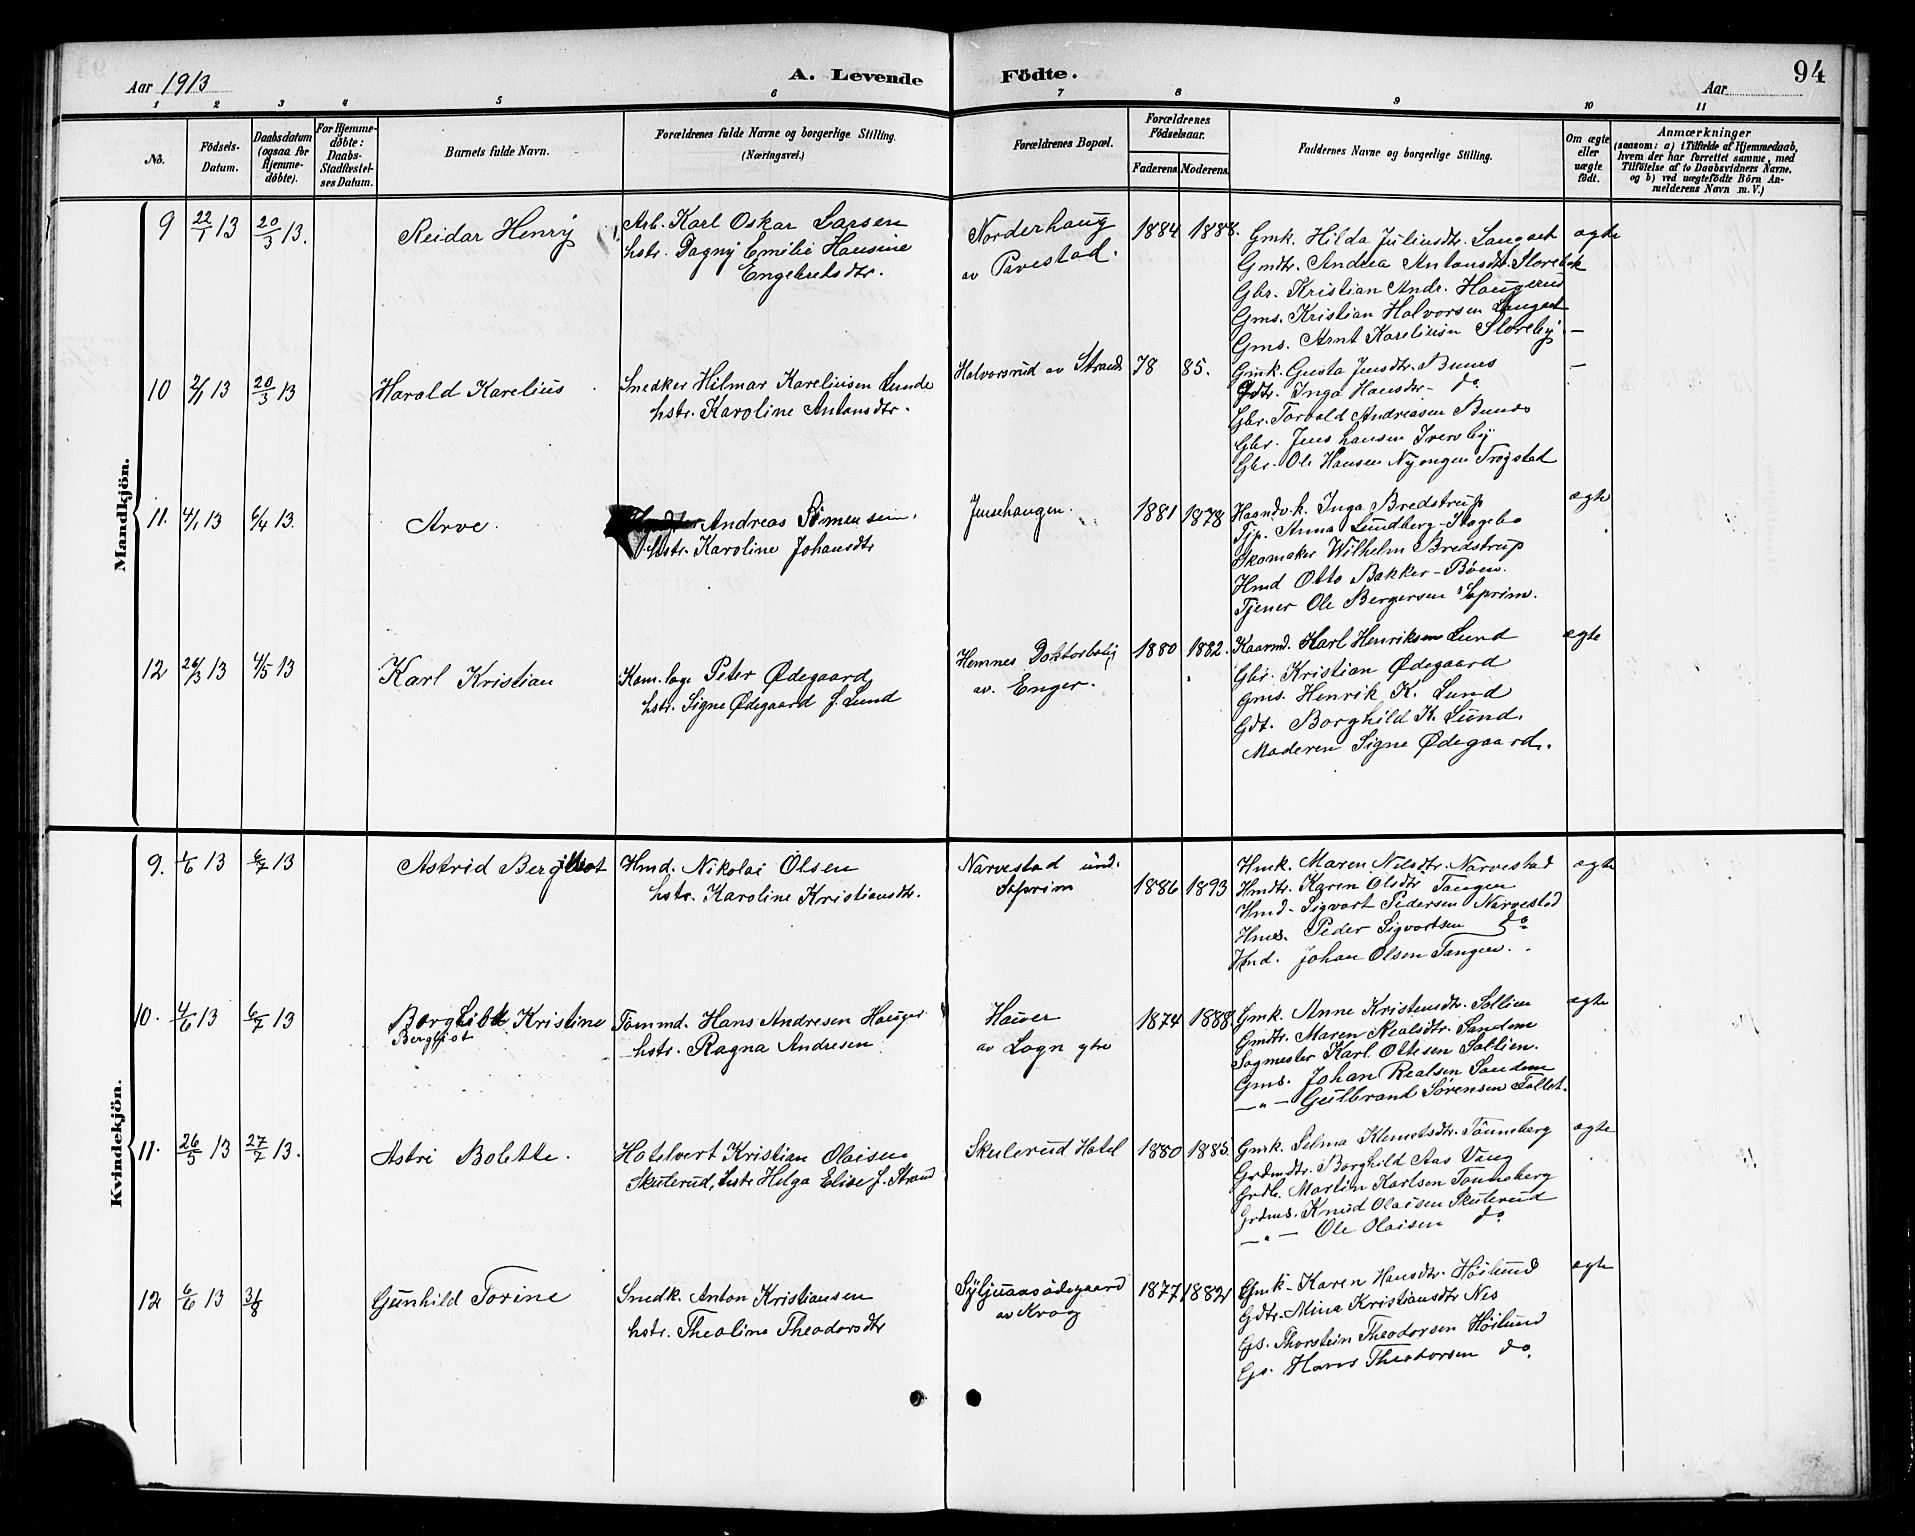 Aar 1913
A. Levende Födte.
Aar
94
1 2 3 4 5 6 7 8 9 10 11
No.
Födsels-Datum.
Daabsdatum (ogsaa for Hjemme-döbte).
For Hjemme-döbte: Daabs-Stadfæstel-ses Datum.
Barnets fulde Navn.
Forældrenes fulde Navne og borgerlige Stilling.
(Næringsvei.)
Forældrenes Bopæl.
Forældrenes Födselsaar.
Faderens. Moderens.
Faddernes Navne og borgerlige Stilling.
Om ægte eller uægte födt.
Anmærkninger
(saasom: a) i Tilfælde af Hjemmedaab,
hvem der har forrettet samme, med
Tilföielse af to Daabsvidners Navne.
og b) ved uægtefödte Börn An-
melderens Navn m. V.)
Mandkjön.
9 22/1 13 20/3 13. Reidar Henry
Arb. Karl Oskar Larsen
hstr. Dagny Emilie Hansine
Engebretsdtr.
Norderhaug
av Pavestad.
1884 1888.
Gmk. Hilda Juliusdtr. Langset
Gmdtr. Andrea Antonsdtr. Storebæk
Gbr. Kristian Andr. Haugerud
Gms. Kristian Halvorsen Langset
Gms. Arnt Kareliusen Storeby
ægte
10 2/1 13 20/3 13 Harald Karelius
Snedker Hilmar Kareliusen Lunde
hstr. Karoline Antonsdtr.
Halvorsrud av Strand
78 85.
Gmk. Gusta Jensdtr. Bunes
Gdtr. Inga Hansdtr - do
Gbr. Torvald Andreasen Bunes
Gbr. Jens Hansen
Gbr. Ole Hansen Nyengen Trøgstad
—
11. 4/1 13 6/4 13. Arve.
Andreas Simensen.
hstr. Karoline Johansdtr
Jensehaugen.
1881 1878
Haandv.k. Inga Bredstrup
Tjp. Anna Lundberg - Skogebo
Skomaker Wilhelm Bredstrup
Hmd Otto Bakker - Böen.
Tjener Ole Bergersen Soprim.
ægte
12 26/3 13 4/5 13 Karl Kristian
Kom.læge Peter Ødegaard
hstr. Signe Ødegaard f. Lund
Hemnes Doktorbolig
av. Enger.
1880 1882.
Kaarmd. Karl Henriksen Lund
Gbr. Kristian Ødegaard
Gms. Henrik K. Lund
Gdt. Borghild K. Lund.
Moderen Signe Ødegaard.
ægte
Kvindekjön.
9. 1/6 13 6/7 13 Astrid Bergliot
Hmd. Nikolai Olsen
hstr. Karoline Kristiansdtr.
Narvestad und.
Soprim
1886 1893
Hmk. Maren Nilsdtr. Narvestad
Hmdtr. Karen Olsdtr Tangen
Hmd - Sigvart Pedersen Narvestad
Hms. Peder Sigvartsen do
Hmd. Johan Olsen Tangen.
ægte
10. 4/6 13 6/7 13 Borghild Kristine
Bergliot
Tømmd. Hans Andresen Hauger
hstr. Ragna Andresen
Hauer
av Logn ytre
1874 1888
Gmk. Anne Kristensdtr. Sollien
Gmdtr. Maren Realsdtr. Sandem
Sagmester Karl Ottesen Sollien.
Gms. Johan Realsen Sandem
— " — Gulbrand Sørensen Tollet.
ægte
11. 26/5 13 27/7 13. Astri Bolette.
Hotelvert Kristian Olaisen
Skulerud, hstr Helga Elise f. Strand
Skulerud Hotel
1880 1885.
Gmk. Selma Klemetsdtr. Tönneberg
Grdmdtr. Borghild Aas Vang
Grdb. Martin Karlsen Tønneberg
Grdms. Knud Olaisen Skulerud
— " — Ole Olaisen do
ægte
12 6/6 13 3/8 Gunhild Torine
Snedk. Anton Kristiansen
hstr. Theoline Theodorsdtr
Syljuaasödegaard
av Krog
1877 1882
Gmk - Karen Hansdtr. Höilund
Gdtr. Mina Kristiansdtr Nes
Gs. Thorstein Theodorsen Höilund
Gs. Hans Theodorsen do.
ægte